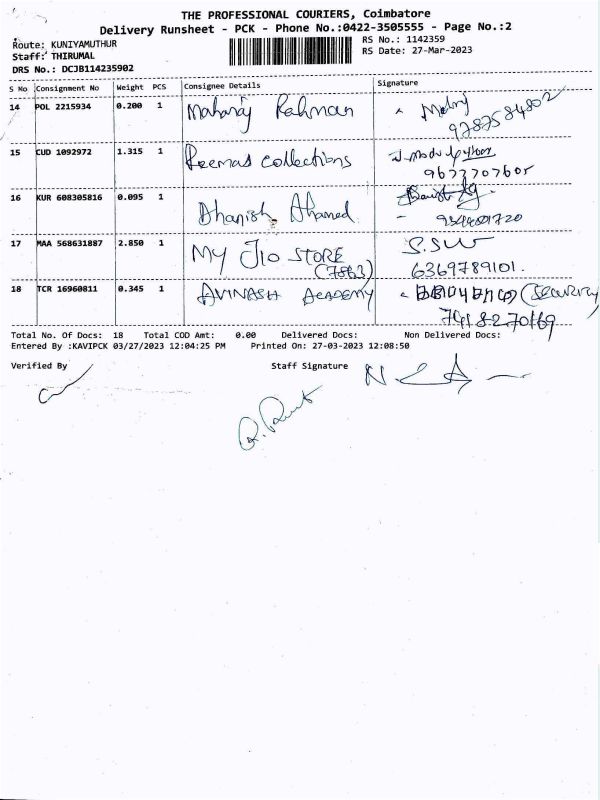 THE PROFESSIONAL COURIERS, Coimbatore
Delivery Runsheet - PCK - Phone No.:0422-3505555 - Page No.:2
Route: KUNIYAMUTHUR
Staff: THIRUMAL
DRS No.: DCJB114235902
RS No.: 1142359
RS Date: 27-Mar-2023
S No Consignment No Weight PCS Consignee Details Signature
14 POL 2215934 0.200 1 Maharaj Rahman
9787584802
15 CUD 1092972 1.315 1 Reemas Collections
9677707605
16 KUR 608305816 0.095 1 Dhanish Ahamed
17 MAA 568631887 2.850 1 My Jio STORE
(7863)
6369789101.
18 TCR 16960811 0.345 1 AVINASH ACADEMY (SECURITY)
7418270169
Total No. Of Docs: 18 Total COD Amt: 0.00 Delivered Docs: Non Delivered Docs:
Entered By :KAVIPCK 03/27/2023 12:04:25 PM Printed On: 27-03-2023 12:08:50
Verified By Staff Signature